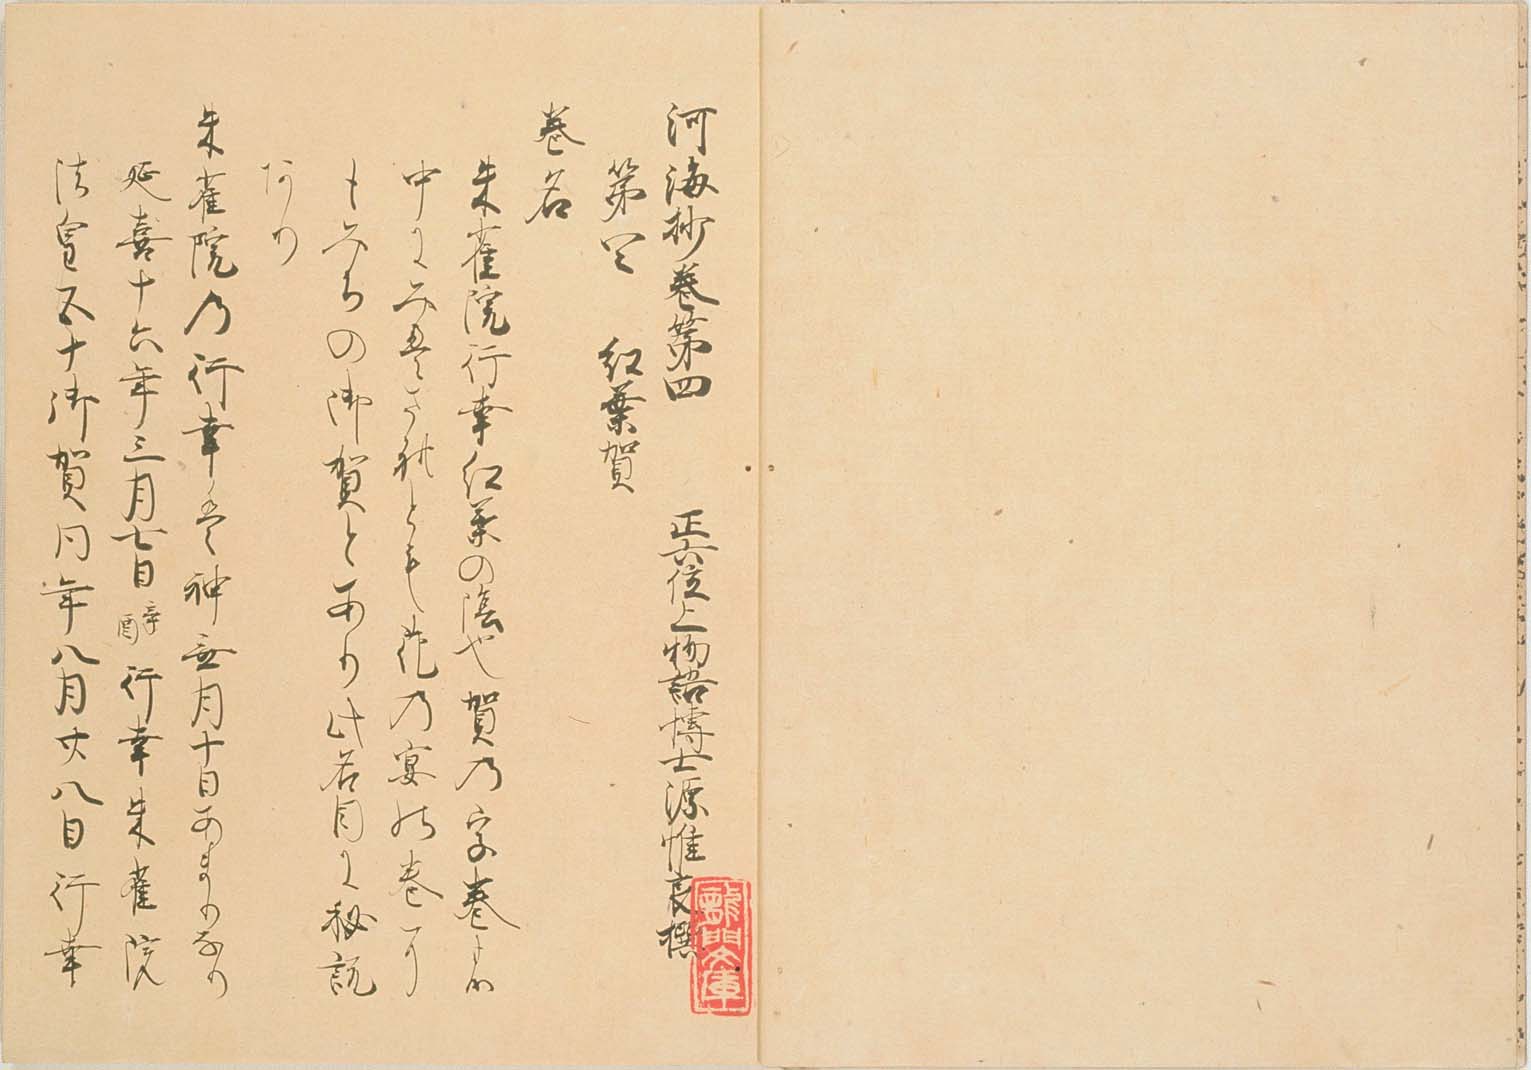 河海抄巻第四
正六位上物語博士源惟良撰
第四　紅葉賀
巻名
朱雀院行幸紅葉の陰也賀乃字巻の
中にみえされとも花乃宴の巻に
もみちの御賀とあり此名目に秘説
あり
朱雀院乃行幸は神無月十日あまりなり
延喜十六年三月七日辛酉行幸朱雀院
法皇五十御賀同年八月廿八日行幸
龍門文庫